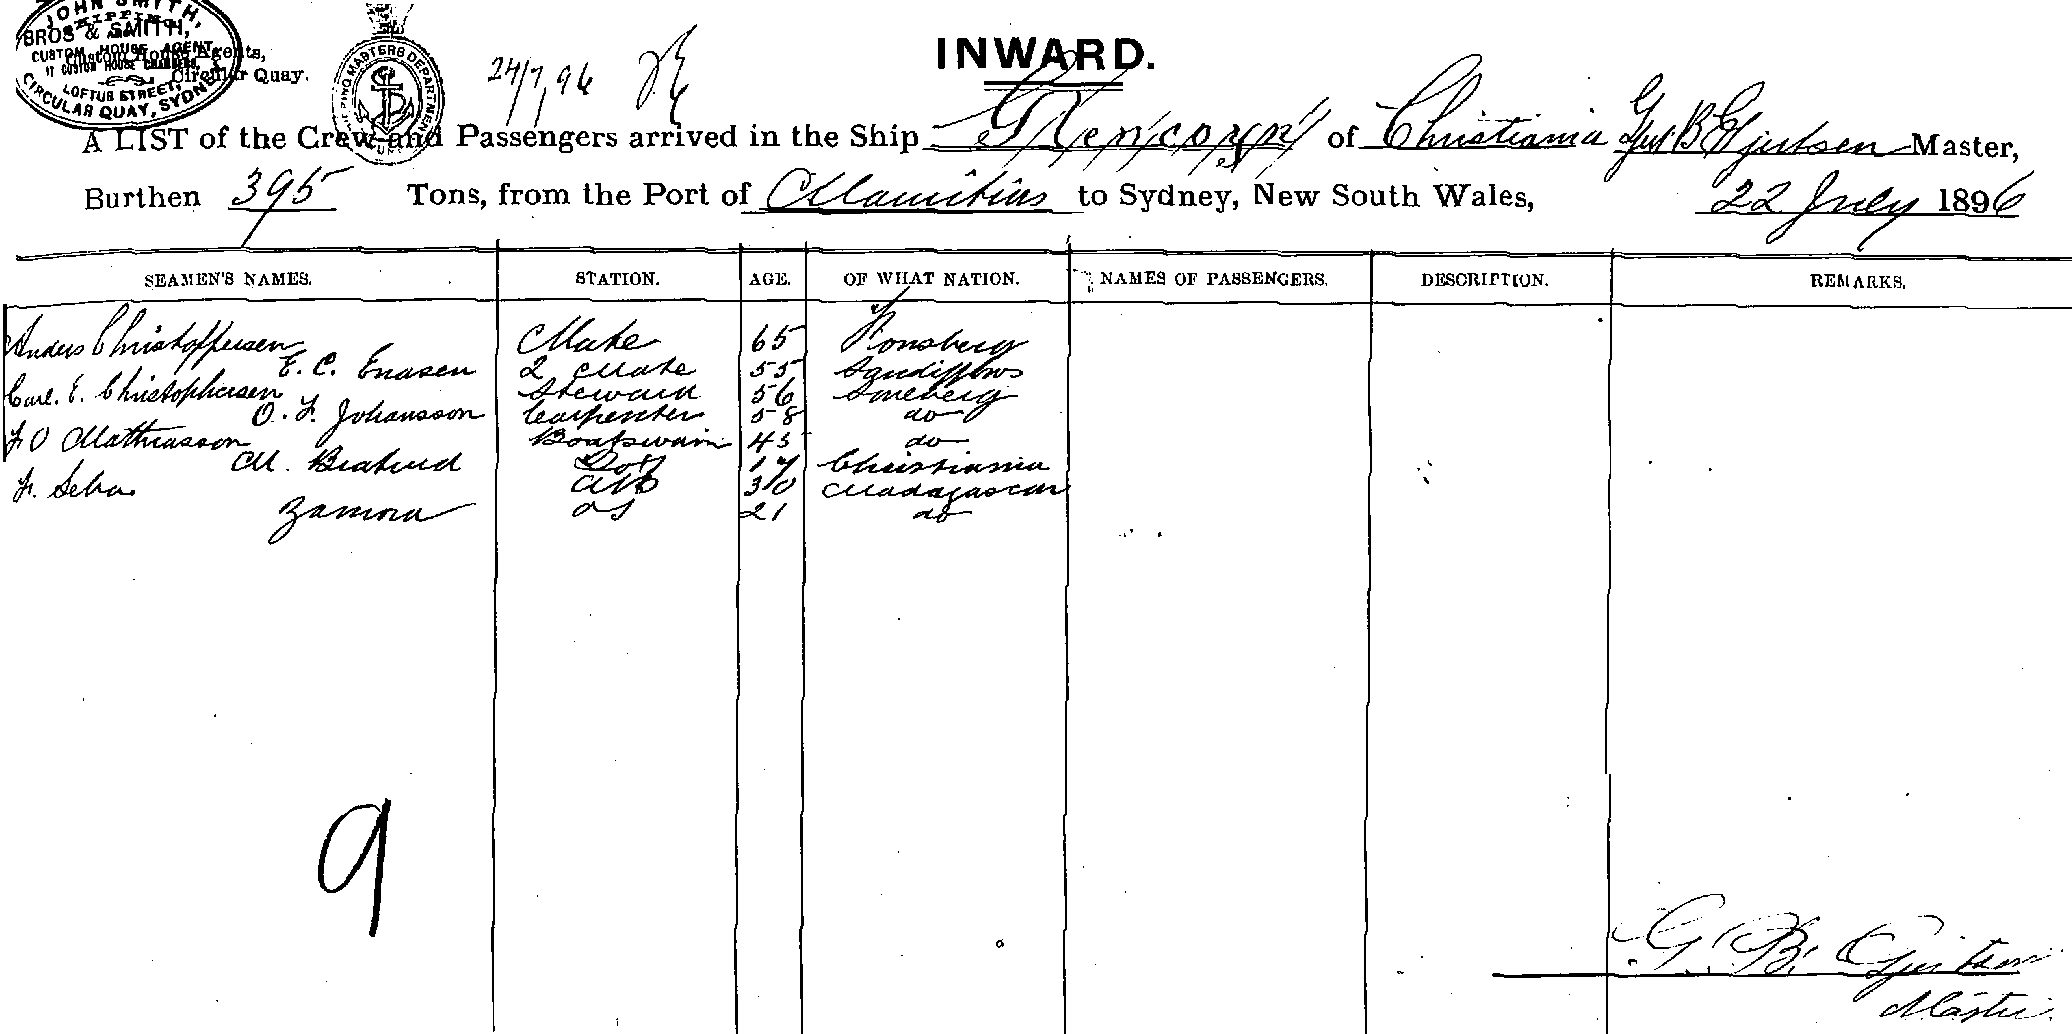 JOHN SMITH,
SHIPPING
BROS & SMITH,
CUSTOM HOUSE AGENT,
Custom House Agents,
17 CUSTOM HOUSE CHAMBERS,
Circular Quay.
LOFTUS STREET,
CIRCULAR QUAY, SYDNEY
SHIPPING MASTERS DEPARTMENT
24/7/96
INWARD.
A LIST of the Crew and Passengers arrived in the Ship Glencorn of Christiania Gus. B. Gjertsen Master,
Burthen 395 Tons, from the Port of Mauritius to Sydney, New South Wales, 22 July 1896
SEAMEN'S NAMES. STATION. AGE. OF WHAT NATION. NAMES OF PASSENGERS. DESCRIPTION. REMARKS.
Anders Christoffersen Mate 65 Tonsberg
E. C. Enasen 2 Mate 55
Carl. E. Christophersen Steward 56 Tonsberg
O. F. Johansson Carpenter 58 do
F O Mathiasson Boatswain 43 do
M. 17 Christiania
F. AB 30 Madagascar
Zamora OS 21 do
9
G. B. Gjertsen
Master